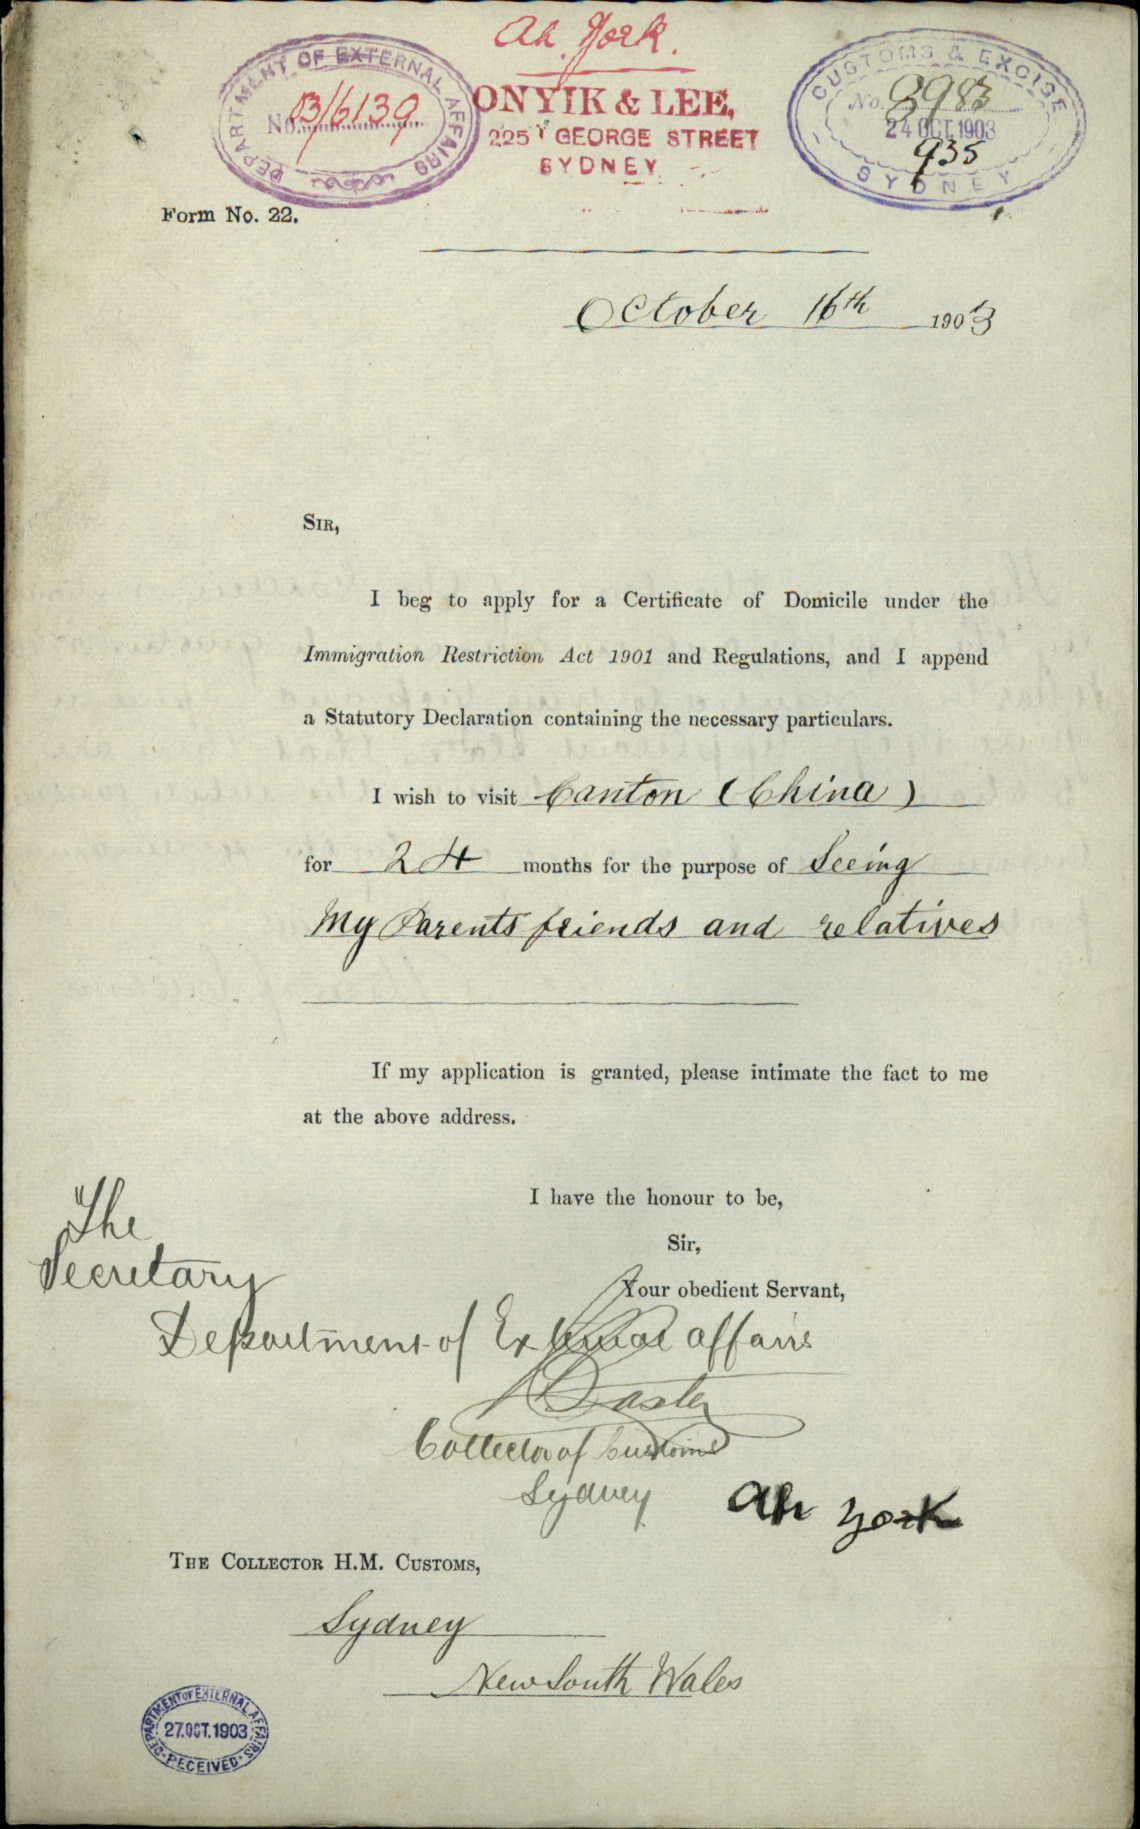 Ah York.
DEPARTMENT OF EXTERNAL AFFAIRS
No. 03/6139
ONYIK & LEE,
225 GEORGE STREET
SYDNEY
CUSTOMS & EXCISE
No. 9983
24 OCT. 1903
935
SYDNEY
Form No. 22.
October 16th 1903
SIR,
I beg to apply for a Certificate of Domicile under the
Immigration Restriction Act 1901 and Regulations, and I append
a Statutory Declaration containing the necessary particulars.
I wish to visit Canton (China)
for 24 months for the purpose of Seeing
My Parents friends and relatives
If my application is granted, please intimate the fact to me
at the above address.
I have the honour to be,
Sir,
Your obedient Servant,
The
Secretary
Department of External affairs
Baxter
Collector of Customs
Sydney
Ah York
THE COLLECTOR H.M. CUSTOMS,
Sydney
New South Wales
DEPARTMENT OF EXTERNAL AFFAIRS
27. OCT. 1903
RECEIVED